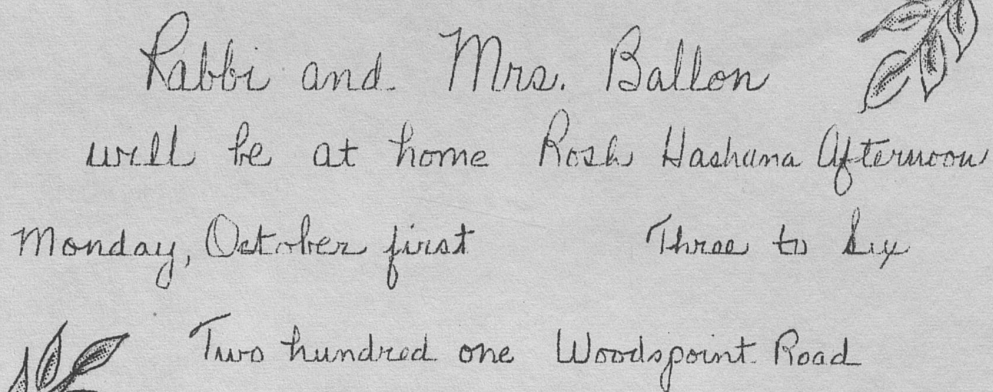 Rabbi and Mrs. Ballon
will be at home Rosh Hashana Afternoon
Monday, October first Three to Six
Two hundred one Woodspoint Road